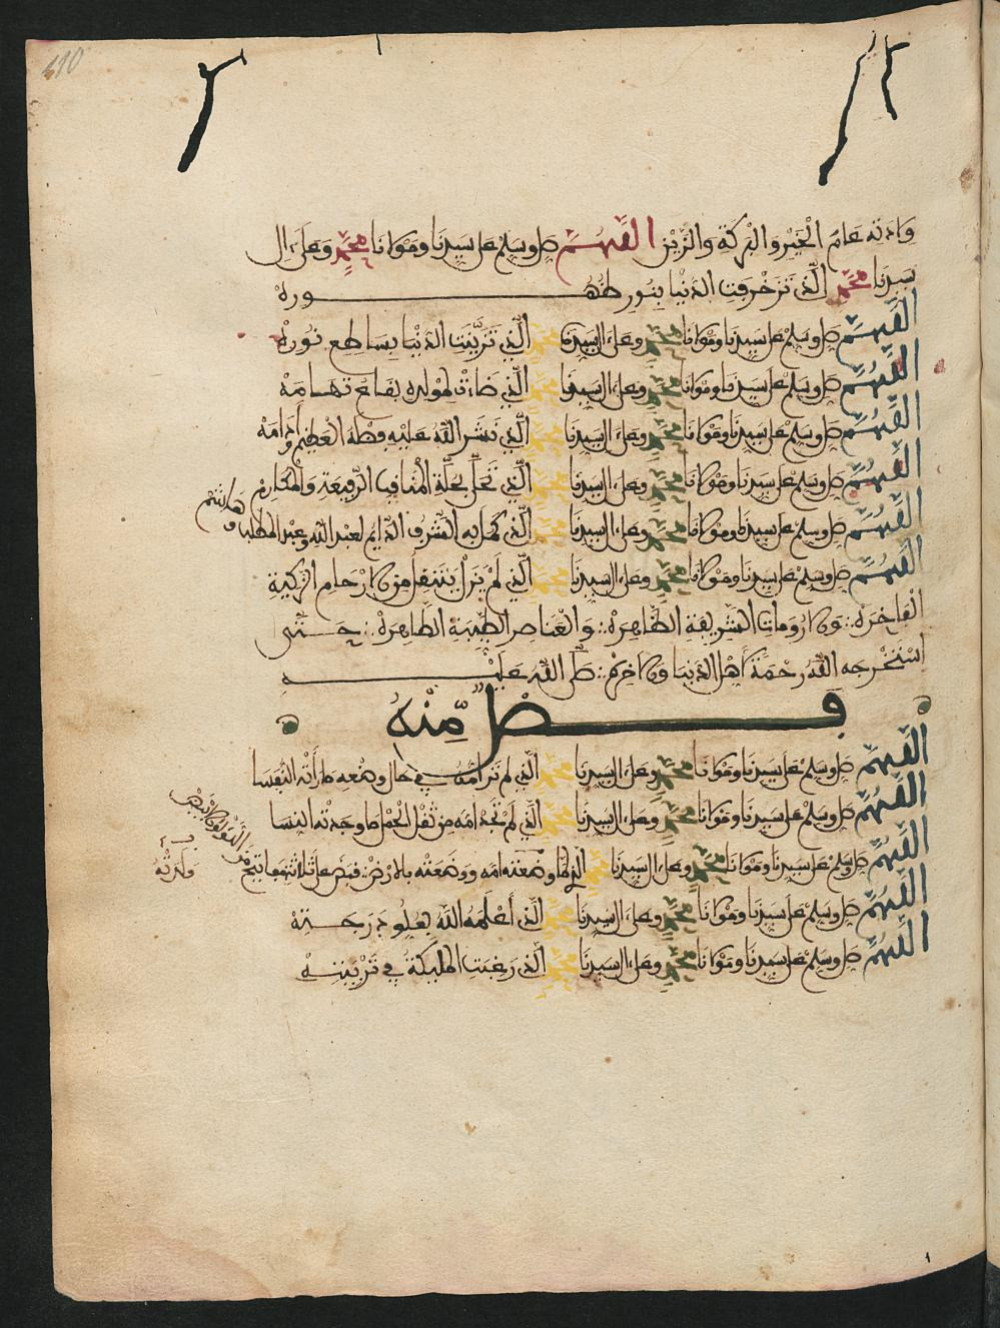 ولادته عام الخير والبركة والزين اللهم صل وسلم على سيدنا ومولانا محمد وعلى ءال
سيدنا محمد الذي تزخرفت الدنيا بنور ظهوره
اللهم صل وسلم على سيدنا ومولانا محمد وعلى ءال سيدنا محمد الذي تزينت الدنيا بساطع نوره
اللهم صل وسلم على سيدنا ومولانا محمد وعلى ءال سيدنا محمد الذي ضاءت لمولده بقاع تهامه
اللهم صل وسلم على سيدنا ومولانا محمد وعلى ءال سيدنا محمد الذي نشر الله عليه فضله العظيم وأدامه
اللهم صل وسلم على سيدنا ومولانا محمد وعلى ءال سيدنا محمد الذي تحلى بحلة المناقب الرفيعة والمكارم
اللهم صل وسلم على سيدنا ومولانا محمد وعلى ءال سيدنا محمد الذي كمل به الشرف الدايم لعبد الله وعبد المطلب وهاشم
اللهم صل وسلم على سيدنا ومولانا محمد وعلى ءال سيدنا محمد الذي لم يزل ينتقل من الارحام الزكية
الفاخره والارومات الشريفة الظاهره والعناصر الطيبة الطاهره حتى
استخرجه الله رحمة لأهل الدنيا والاخره صلى الله عليه
فصل منه
اللهم صل وسلم على سيدنا ومولانا محمد وعلى ءال سيدنا محمد الذي لم تر أمه في حال وضعه ما رأته النفسا
اللهم صل وسلم على سيدنا ومولانا محمد وعلى ءال سيدنا محمد الذي لم تجد امه من ثقل الحمل ما وجدته النسا
اللهم صل وسلم على سيدنا ومولانا محمد وعلى ءال سيدنا محمد الذي لما وضعته امه ووضعته بالارض قبض على
اللهم صل وسلم على سيدنا ومولانا محمد وعلى ءال سيدنا محمد الذي أعلمه الله بعلو درجته
اللهم صل وسلم على سيدنا ومولانا محمد وعلى ءال سيدنا محمد الذي رغبت المليكة في تربيته